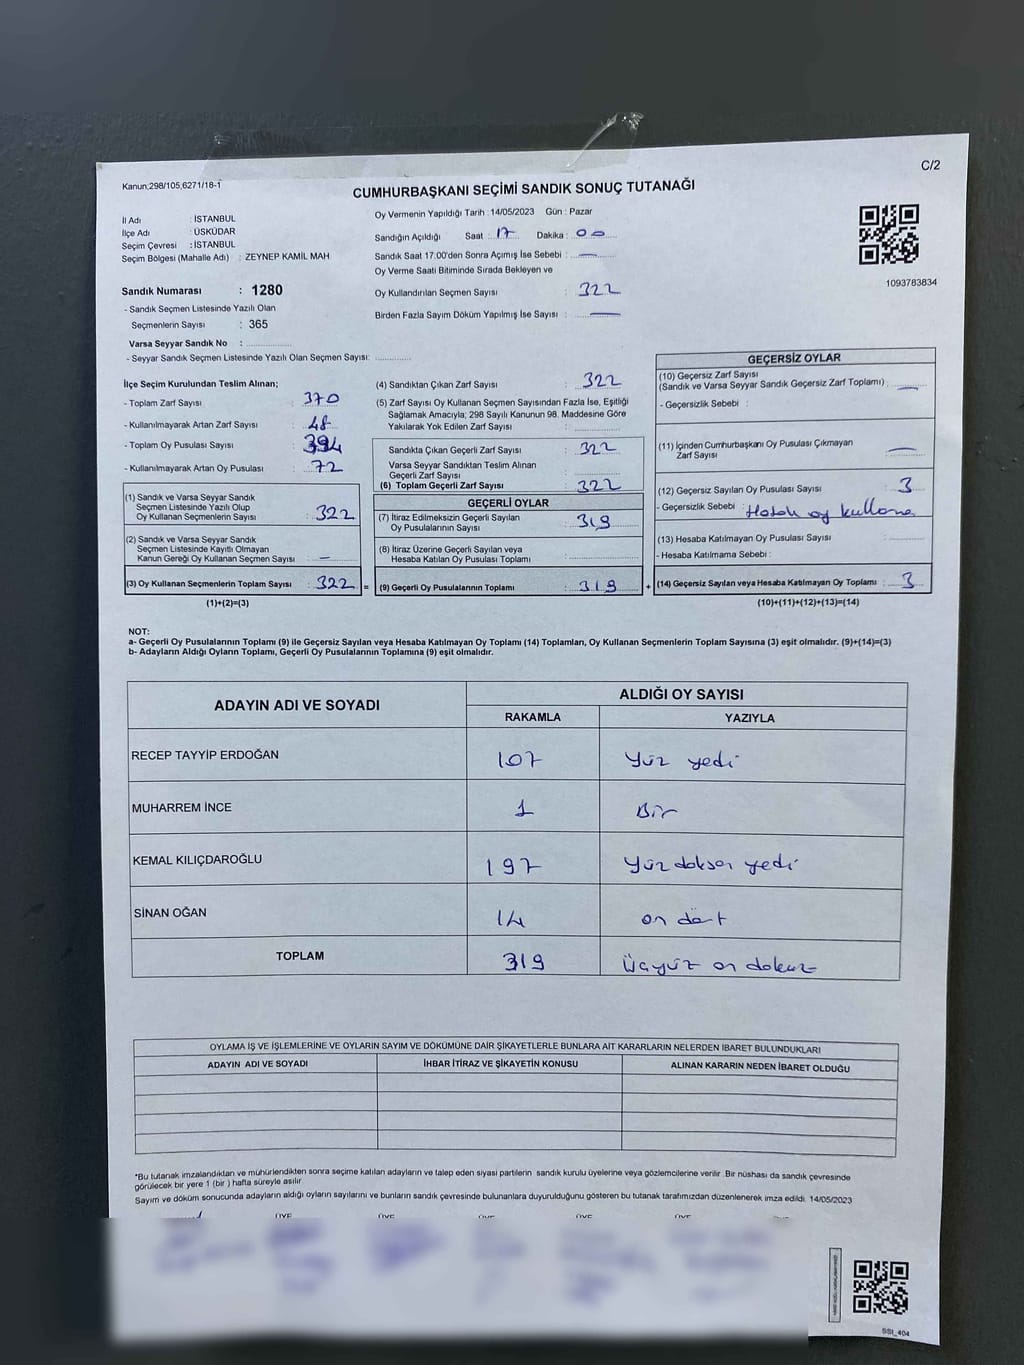 C/2
Kanun;298/105,6271/18-1
CUMHURBAŞKANI SEÇİMİ SANDIK SONUÇ TUTANAĞI
İl Adı : İSTANBUL
İlçe Adı : ÜSKÜDAR
Seçim Çevresi : İSTANBUL
Seçim Bölgesi (Mahalle Adı) : ZEYNEP KAMİL MAH
Oy Vermenin Yapıldığı Tarih : 14/05/2023 Gün : Pazar
Sandığın Açıldığı Saat : 17 Dakika : 00
Sandık Saat 17.00'den Sonra Açımış İse Sebebi : —
Oy Verme Saati Bitiminde Sırada Bekleyen ve
Oy Kullandırılan Seçmen Sayısı : 322
Birden Fazla Sayım Döküm Yapılmış İse Sayısı : —
1093783834
Sandık Numarası : 1280
- Sandık Seçmen Listesinde Yazılı Olan
Seçmenlerin Sayısı : 365
Varsa Seyyar Sandık No :
- Seyyar Sandık Seçmen Listesinde Yazılı Olan Seçmen Sayısı:
İlçe Seçim Kurulundan Teslim Alınan;
- Toplam Zarf Sayısı : 370
- Kullanılmayarak Artan Zarf Sayısı : 48
- Toplam Oy Pusulası Sayısı : 394
- Kullanılmayarak Artan Oy Pusulası : 72
(1) Sandık ve Varsa Seyyar Sandık
Seçmen Listesinde Yazılı Olup
Oy Kullanan Seçmenlerin Sayısı : 322
(2) Sandık ve Varsa Seyyar Sandık
Seçmen Listesinde Kayıtlı Olmayan
Kanun Gereği Oy Kullanan Seçmen Sayısı : —
(3) Oy Kullanan Seçmenlerin Toplam Sayısı : 322 =
(1)+(2)=(3)
(4) Sandıktan Çıkan Zarf Sayısı : 322
(5) Zarf Sayısı Oy Kullanan Seçmen Sayısından Fazla İse, Eşitliği
Sağlamak Amacıyla; 298 Sayılı Kanunun 98. Maddesine Göre
Yakılarak Yok Edilen Zarf Sayısı :
Sandıkta Çıkan Geçerli Zarf Sayısı : 322
Varsa Seyyar Sandıktan Teslim Alınan
Geçerli Zarf Sayısı :
(6) Toplam Geçerli Zarf Sayısı : 322
GEÇERLİ OYLAR
(7) İtiraz Edilmeksizin Geçerli Sayılan
Oy Pusulalarının Sayısı : 319
(8) İtiraz Üzerine Geçerli Sayılan veya
Hesaba Katılan Oy Pusulası Toplamı :
(9) Geçerli Oy Pusulalarının Toplamı : 319 +
GEÇERSİZ OYLAR
(10) Geçersiz Zarf Sayısı
(Sandık ve Varsa Seyyar Sandık Geçersiz Zarf Toplamı) : —
- Geçersizlik Sebebi :
(11) İçinden Cumhurbaşkanı Oy Pusulası Çıkmayan
Zarf Sayısı : —
(12) Geçersiz Sayılan Oy Pusulası Sayısı : 3
- Geçersizlik Sebebi : Hatalı oy kullanma
(13) Hesaba Katılmayan Oy Pusulası Sayısı :
- Hesaba Katılmama Sebebi :
(14) Geçersiz Sayılan veya Hesaba Katılmayan Oy Toplamı : 3
(10)+(11)+(12)+(13)=(14)
NOT:
a- Geçerli Oy Pusulalarının Toplamı (9) ile Geçersiz Sayılan veya Hesaba Katılmayan Oy Toplamı (14) Toplamları, Oy Kullanan Seçmenlerin Toplam Sayısına (3) eşit olmalıdır. (9)+(14)=(3)
b- Adayların Aldığı Oyların Toplamı, Geçerli Oy Pusulalarının Toplamına (9) eşit olmalıdır.
ADAYIN ADI VE SOYADI ALDIĞI OY SAYISI
RAKAMLA YAZIYLA
RECEP TAYYİP ERDOĞAN 107 Yüz yedi
MUHARREM İNCE 1 Bir
KEMAL KILIÇDAROĞLU 197 Yüz doksan yedi
SİNAN OĞAN 14 on dört
TOPLAM 319 Üçyüz on dokuz
OYLAMA İŞ VE İŞLEMLERİNE VE OYLARIN SAYIM VE DÖKÜMÜNE DAİR ŞİKAYETLERLE BUNLARA AİT KARARLARIN NELERDEN İBARET BULUNDUKLARI
ADAYIN ADI VE SOYADI İHBAR İTİRAZ VE ŞİKAYETİN KONUSU ALINAN KARARIN NEDEN İBARET OLDUĞU
*Bu tutanak imzalandıktan ve mühürlendikten sonra seçime katılan adayların ve talep eden siyasi partilerin sandık kurulu üyelerine veya gözlemcilerine verilir. Bir nüshası da sandık çevresinde
görülecek bir yere 1 (bir ) hafta süreyle asılır
Sayım ve döküm sonucunda adayların aldığı oyların sayılarını ve bunların sandık çevresinde bulunanlara duyurulduğunu gösteren bu tutanak tarafımızdan düzenlenerek imza edildi. 14/05/2023
ÜYE ÜYE ÜYE ÜYE ÜYE
SSI_404